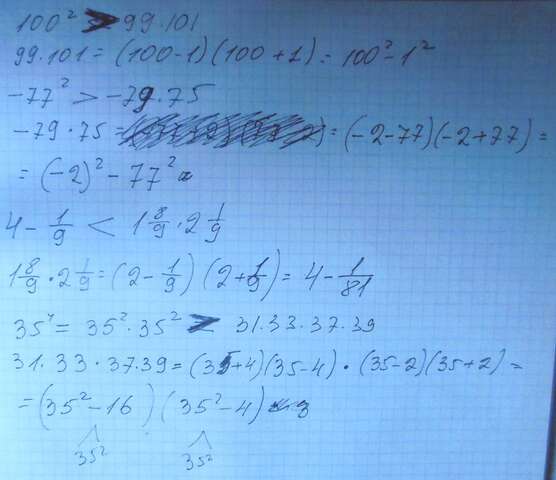 100² > 99·101
99·101 = (100-1)(100+1) = 100²-1²
-77² > -79·75
-79·75 = = (-2-77)(-2+77) =
= (-2)² - 77²
4 - 1/9 < 1 8/9 · 2 1/9
1 8/9 · 2 1/9 = (2 - 1/9)(2 + 1/9) = 4 - 1/81
35⁴ = 35²·35² > 31·33·37·39
31·33·37·39 = (35+4)(35-4)·(35-2)(35+2) =
= (35²-16)(35²-4)
35² 35²